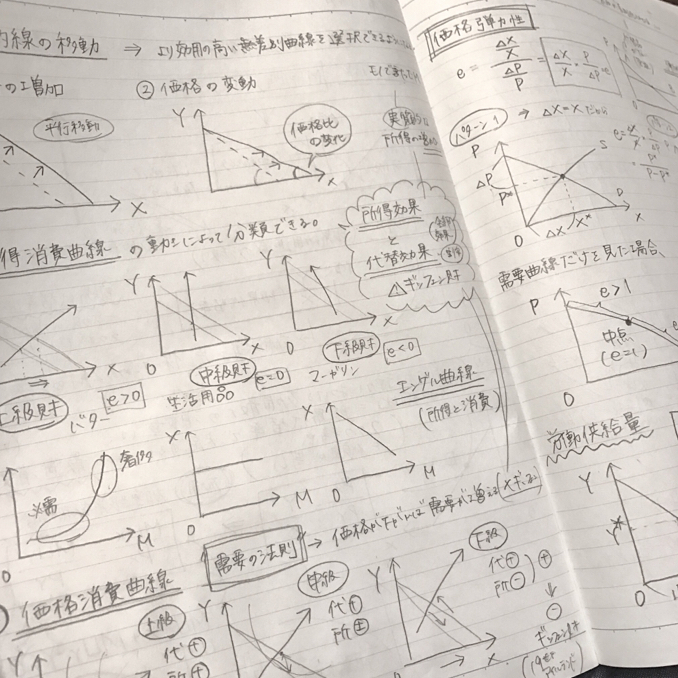 線の移動 ⇒ より効用の高い無差別曲線を選択できる
の増加
② 価格の変動
平行移動
Y
X
Y
X
価格比の変化
実質的な
所得の
得消費曲線 の動きによって分類できる。
所得効果
と
代替効果
△ギッフェン財
Y
X
O
Y
X
O
上級財
e>0
バター
中級財
e=0
生活用品
下級財
e<0
マーガリン
エンゲル曲線
(所得と消費)
X
M
O
必需
奢侈
X
M
O
X
M
O
需要の法則 → 価格が下がれば需要が増える
価格消費曲線
上級
代⊕
所⊕
Y
中級
代⊕
所⊕
Y
下級
代⊕
所⊖
⊕
↓
⊖
ギッフェン財
Y
X
価格弾力性
e = ΔX/X / ΔP/P = ΔX/X · P/ΔP
パターン1 → ΔX=X だから
P
S
ΔP
P*
D
O
ΔX
X*
X
需要曲線だけを見た場合、
P
e>1
中点
(e=1)
O
労働供給量
Y